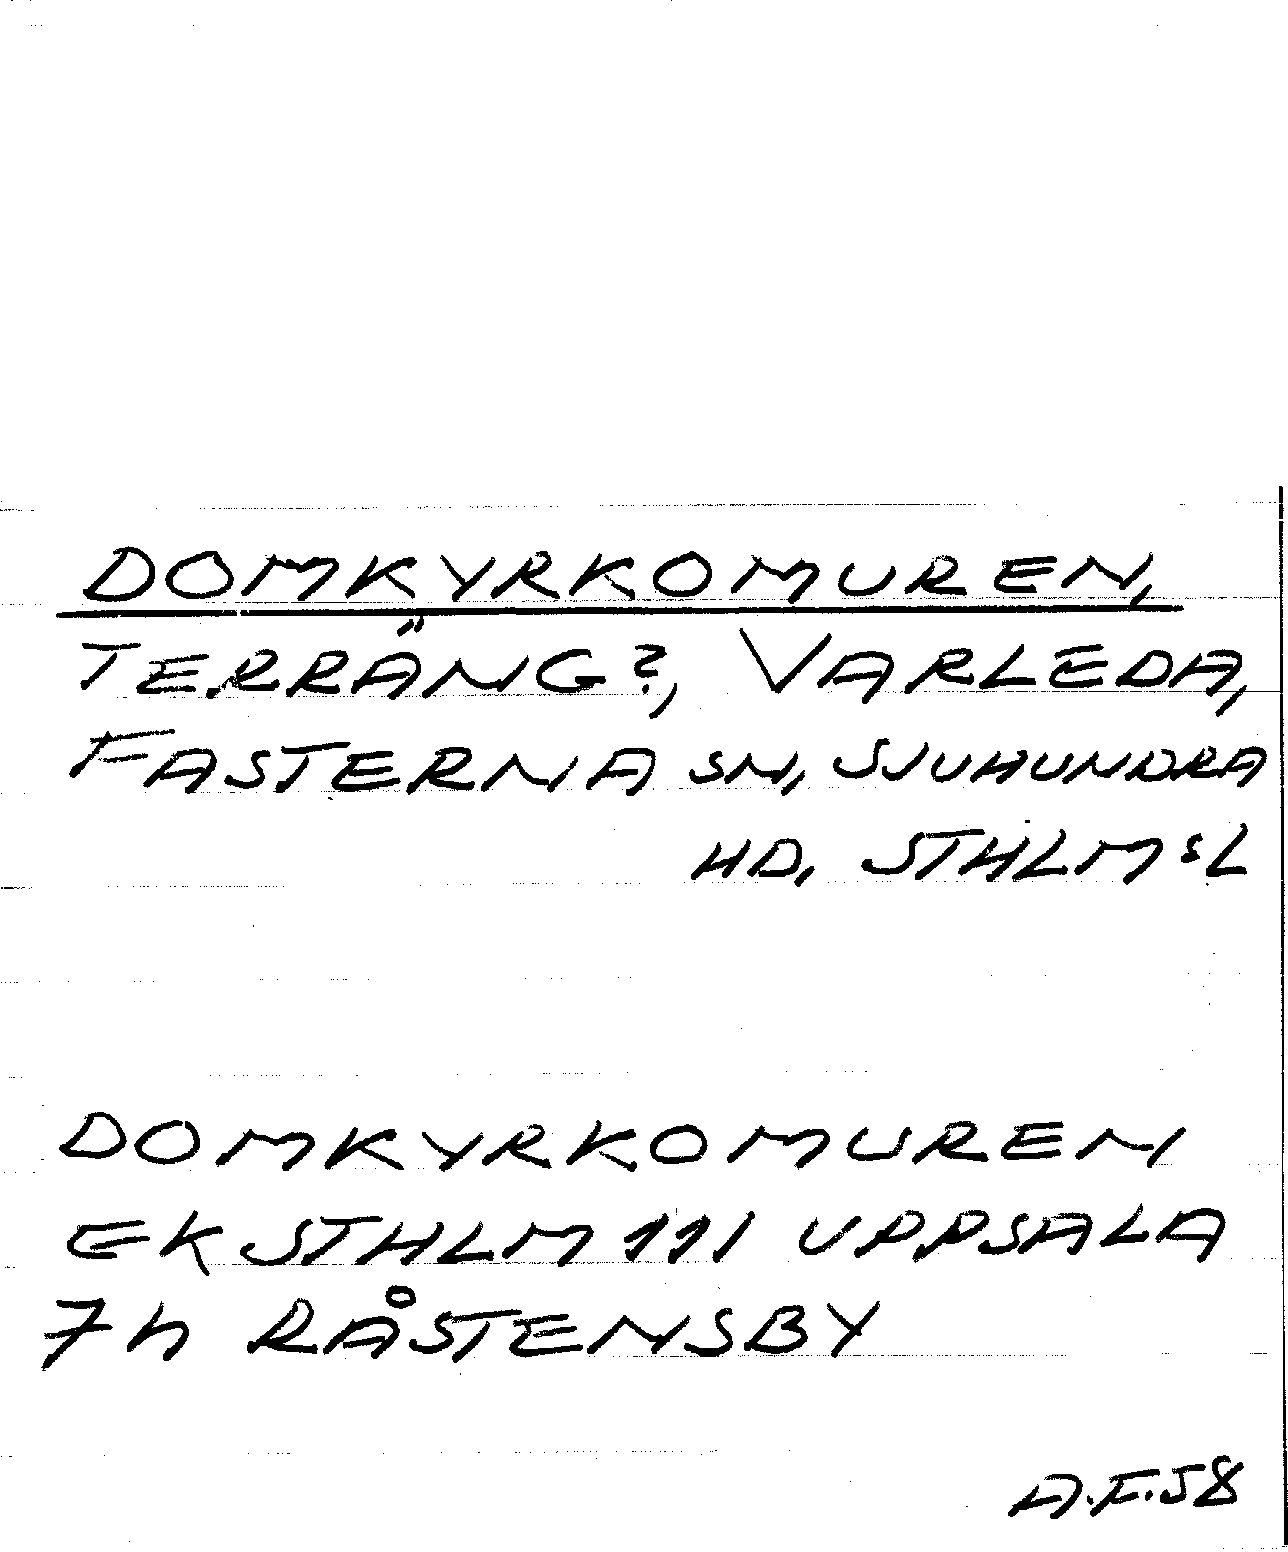 DOMKYRKOMUREN,
TERRÄNG?, VARLEDA,
FASTERNA SN, SJUHUNDRA
HD, STHLMSL
DOMKYRKOMUREN
EK STHLM 111 UPPSALA
7h RÅSTENSBY
A.F.58